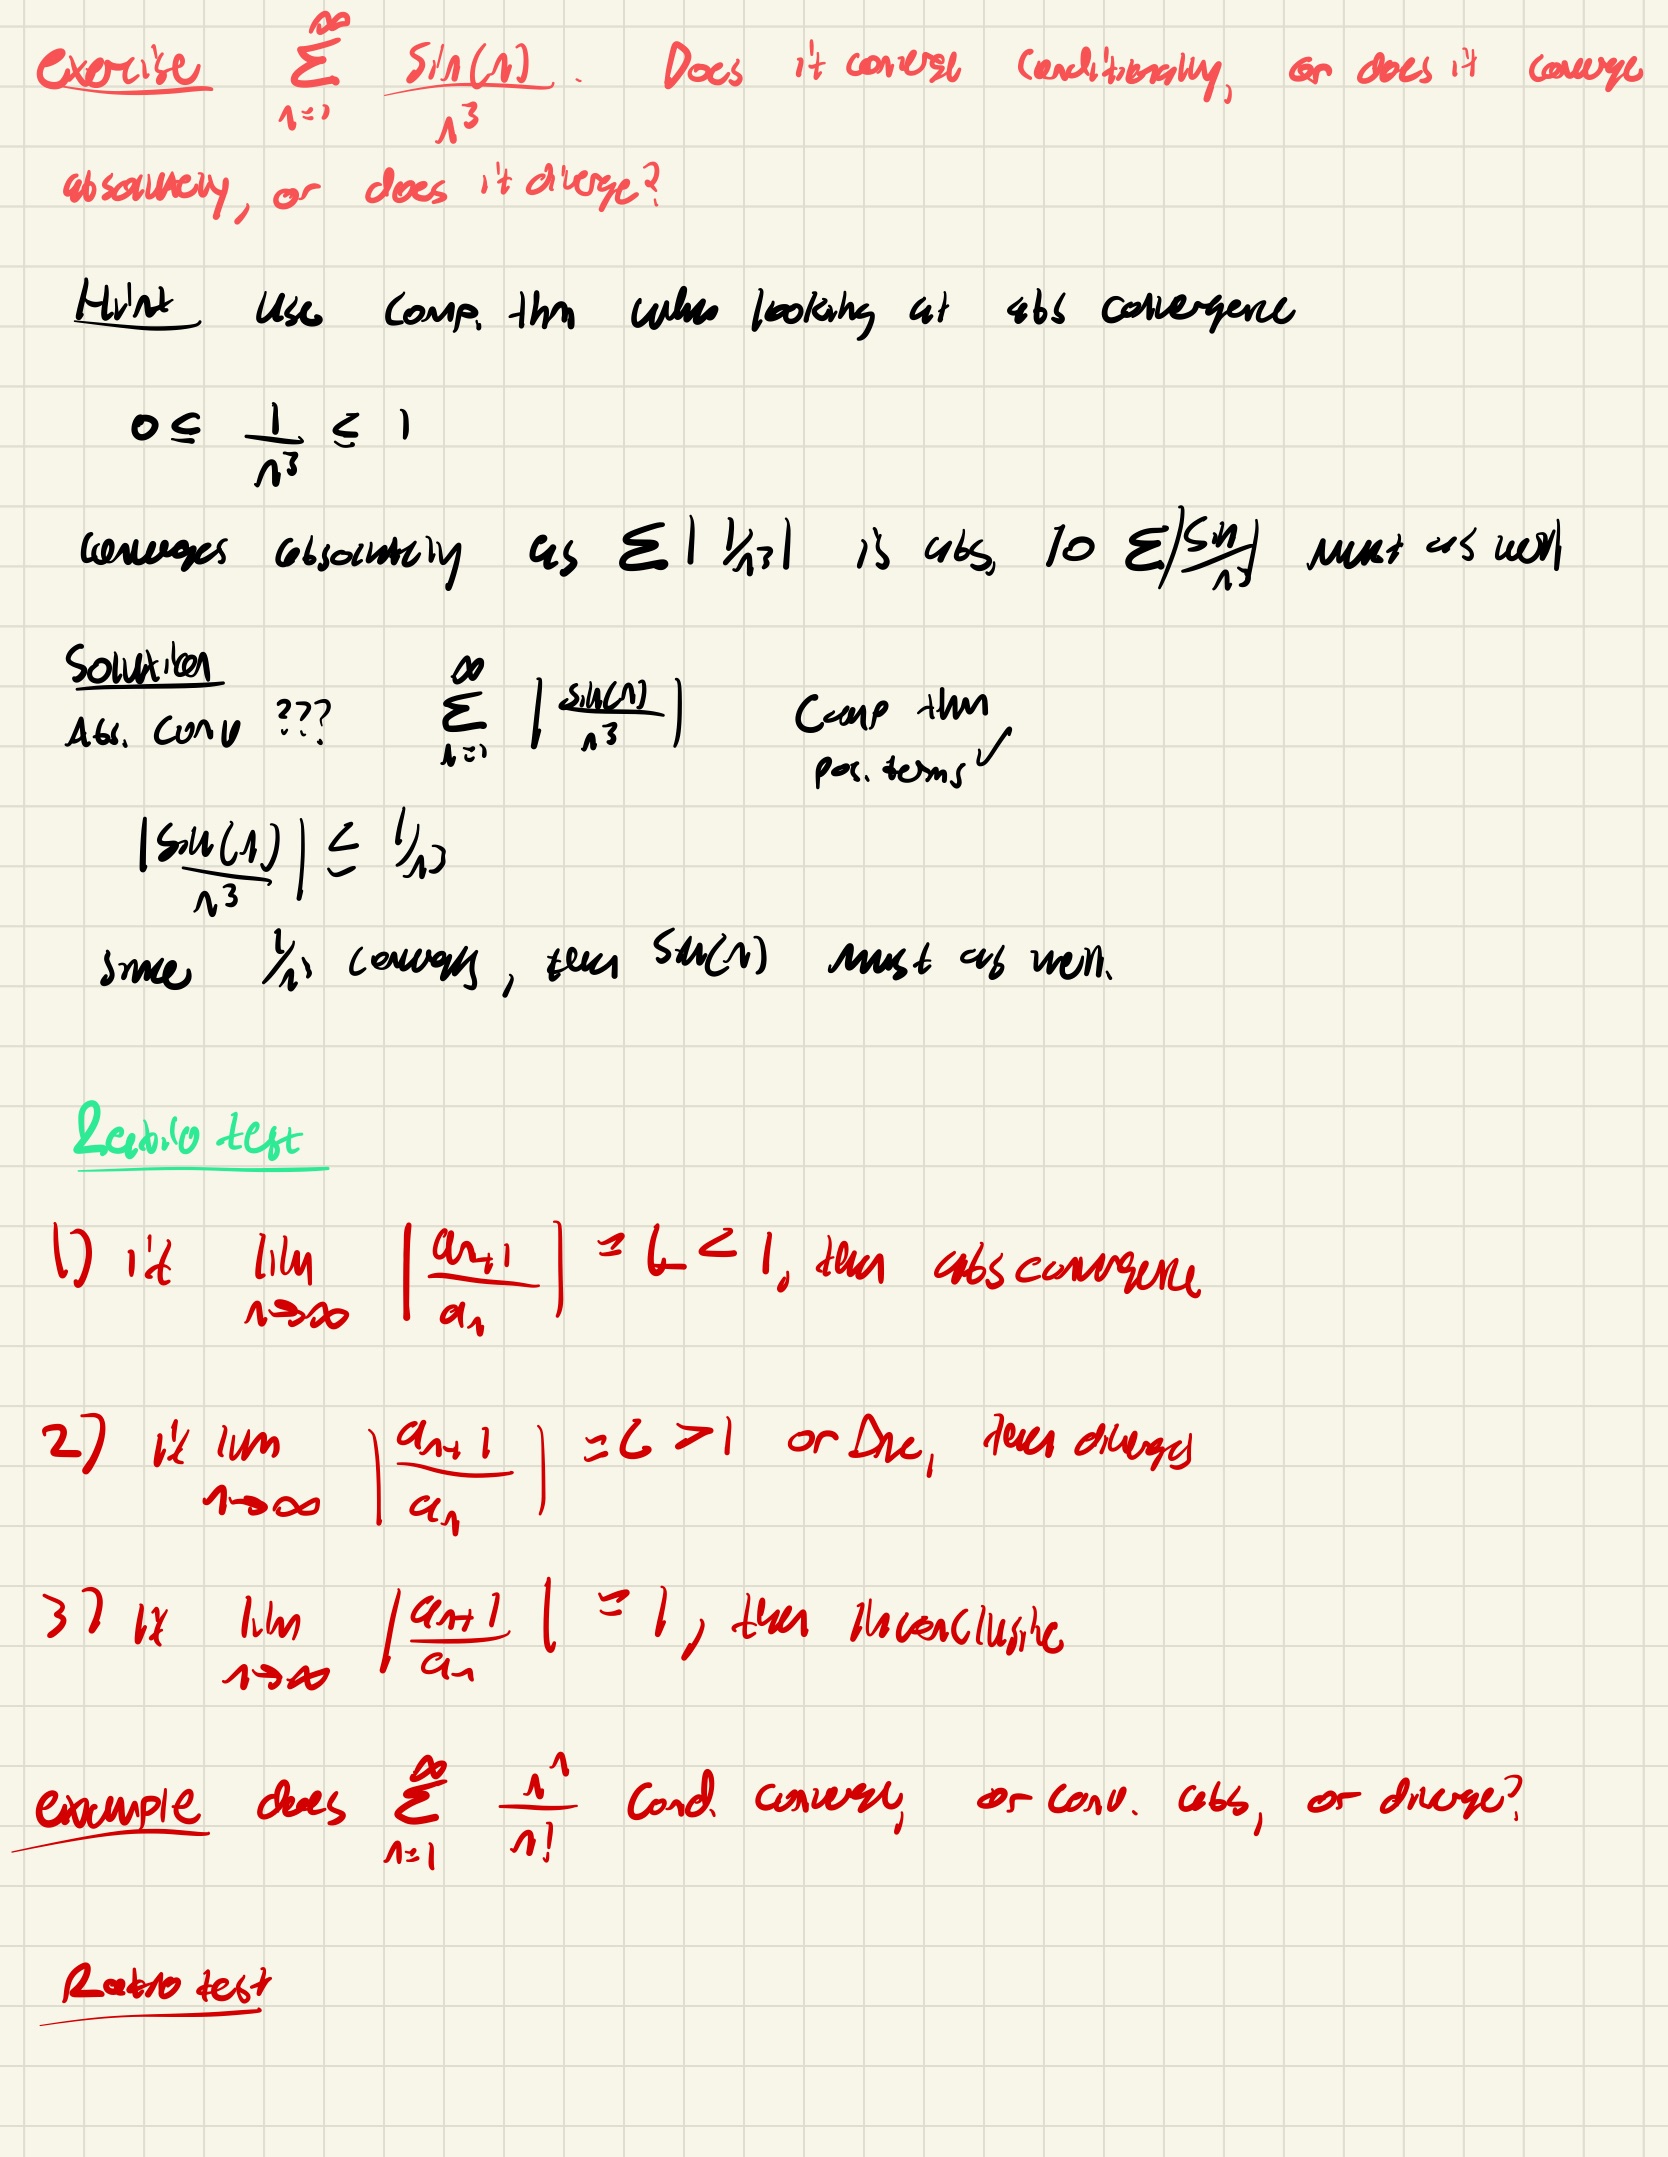 exercise ∞ Σ n=1 sin(n)/n³. Does it converge conditionally, or does it converge
absolutely, or does it diverge?
Hint use comp. thm when looking at abs convergence
0 ≤ 1/n³ ≤ 1
converges absolutely as Σ|1/n³| is abs, so Σ|sin/n³| must as well
Solution
Abs. conv ??? ∞ Σ n=1 |sin(n)/n³| Comp thm
pos. terms ✓
|sin(n)/n³| ≤ 1/n³
since 1/n³ converges, then sin(n) must as well.
Ratio test
1) if lim n→∞ |aₙ₊₁/aₙ| = L < 1, then abs convergence
2) if lim n→∞ |aₙ₊₁/aₙ| = L > 1 or Dne, then diverges
3) if lim n→∞ |aₙ₊₁/aₙ| = 1, then inconclusive
example does ∞ Σ n=1 nⁿ/n! Cond. converge, or conv. abs, or diverge?
Ratio test